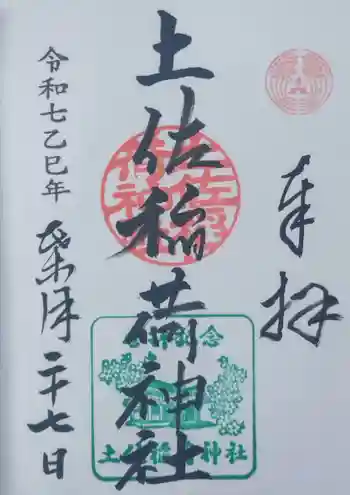 奉拝
土佐稲荷神社
令和七乙巳年
葉月二十七日
参拝記念
土佐稲荷神社